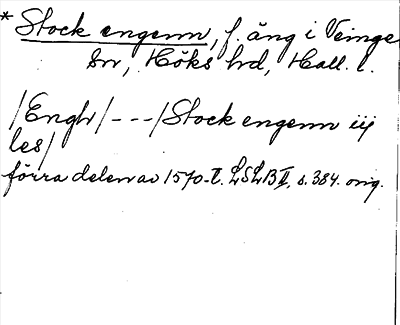 * Stock engenn, f. äng i Veinge
sn, Höks hd, Hall. l.
/Engh/ --- / Stock engenn iij
les/
förra delen av 1570-t. LSLB II, s. 384. orig.